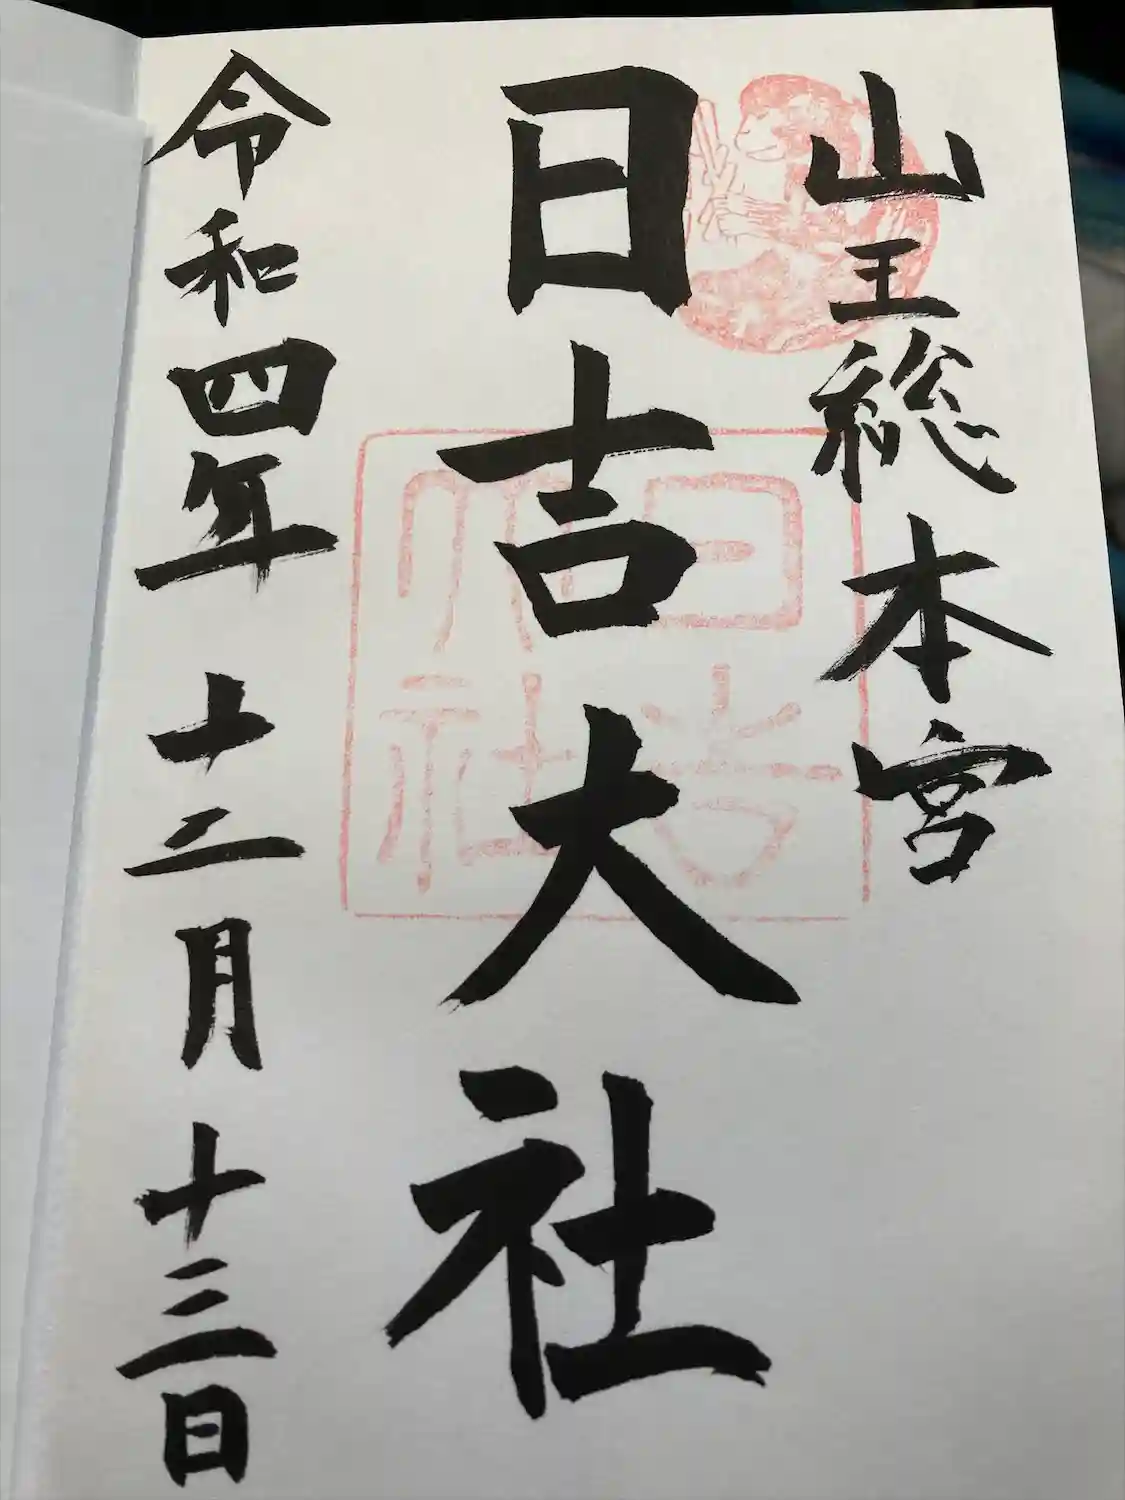 山王総本宮
日吉大社
日吉大社
令和四年十二月十三日